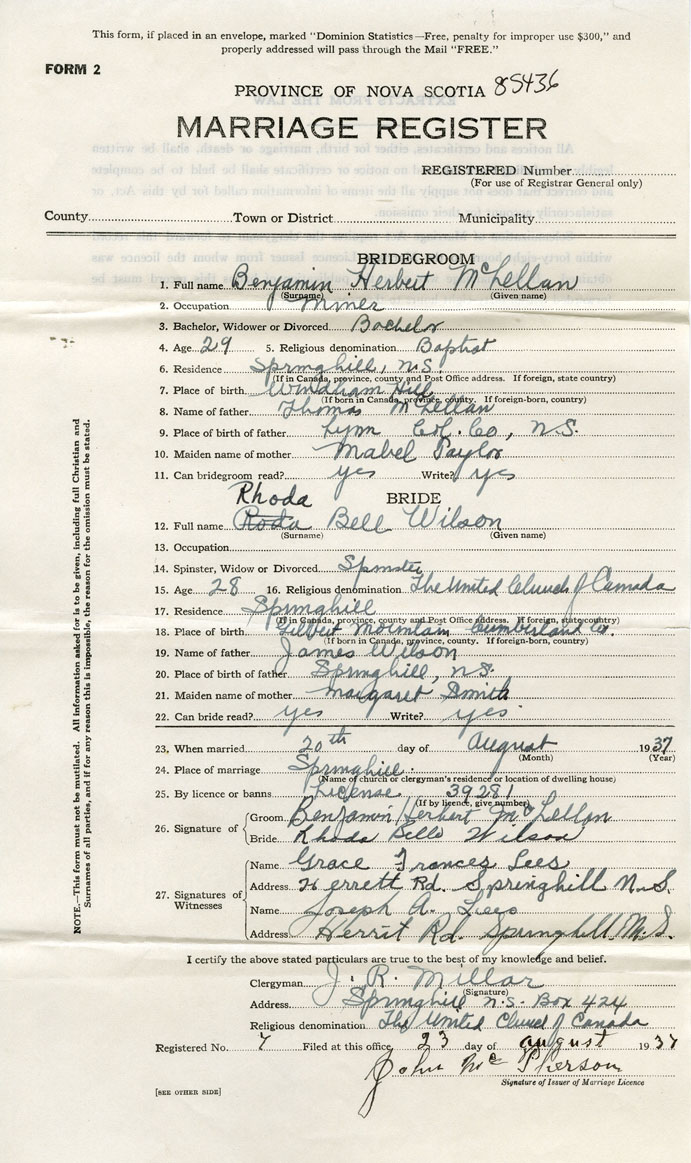 This form, if placed in an envelope, marked "Dominion Statistics—Free, penalty for improper use $300," and
properly addressed will pass through the Mail "FREE."
FORM 2
PROVINCE OF NOVA SCOTIA 85436
MARRIAGE REGISTER
REGISTERED Number
(For use of Registrar General only)
County Town or District Municipality
BRIDEGROOM
1. Full name Benjamin Herbert McLellan
(Surname) (Given name)
2. Occupation Miner
3. Bachelor, Widower or Divorced Bachelor
4. Age 29 5. Religious denomination Baptist
6. Residence Springhill, N.S.
(If in Canada, province, county and Post Office address. If foreign, state country)
7. Place of birth Windham Hill
(If born in Canada, province, county. If foreign-born, country)
8. Name of father Thomas McLellan
9. Place of birth of father Lynn Col. Co, N.S.
10. Maiden name of mother Mabel Taylor
11. Can bridegroom read? yes Write? yes
Rhoda BRIDE
12. Full name Roda Bell Wilson
(Surname) (Given name)
13. Occupation
14. Spinster, Widow or Divorced Spinster
15. Age 28 16. Religious denomination The United Church of Canada
17. Residence Springhill
(If in Canada, province, county and Post Office address. If foreign, state country)
18. Place of birth Gilbert Mountain Cumberland Co.
(If born in Canada, province, county. If foreign-born, country)
19. Name of father James Wilson
20. Place of birth of father Springhill, N.S.
21. Maiden name of mother Margaret Smith
22. Can bride read? yes Write? yes
23. When married 20th day of August 1937
(Month) (Year)
24. Place of marriage Springhill.
(Name of church or clergyman's residence or location of dwelling house)
25. By licence or banns License 39281
(If by licence, give number)
26. Signature of Groom Benjamin Herbert McLellan
Bride Rhoda Belle Wilson
27. Signatures of Witnesses Name Grace Frances Lees
Address Herrett Rd. Springhill N.S.
Name Joseph A. Lees
Address Herrit Rd. Springhill N.S.
I certify the above stated particulars are true to the best of my knowledge and belief.
Clergyman J. R. Millar
(Signature)
Address Springhill N.S. Box 424
Religious denomination The United Church of Canada
Registered No. 7 Filed at this office, 23 day of august 1937
John McPherson
Signature of Issuer of Marriage Licence
[SEE OTHER SIDE]
NOTE.—This form must not be mutilated. All information asked for is to be given, including full Christian and
Surnames of all parties, and if for any reason this is impossible, the reason for the omission must be stated.